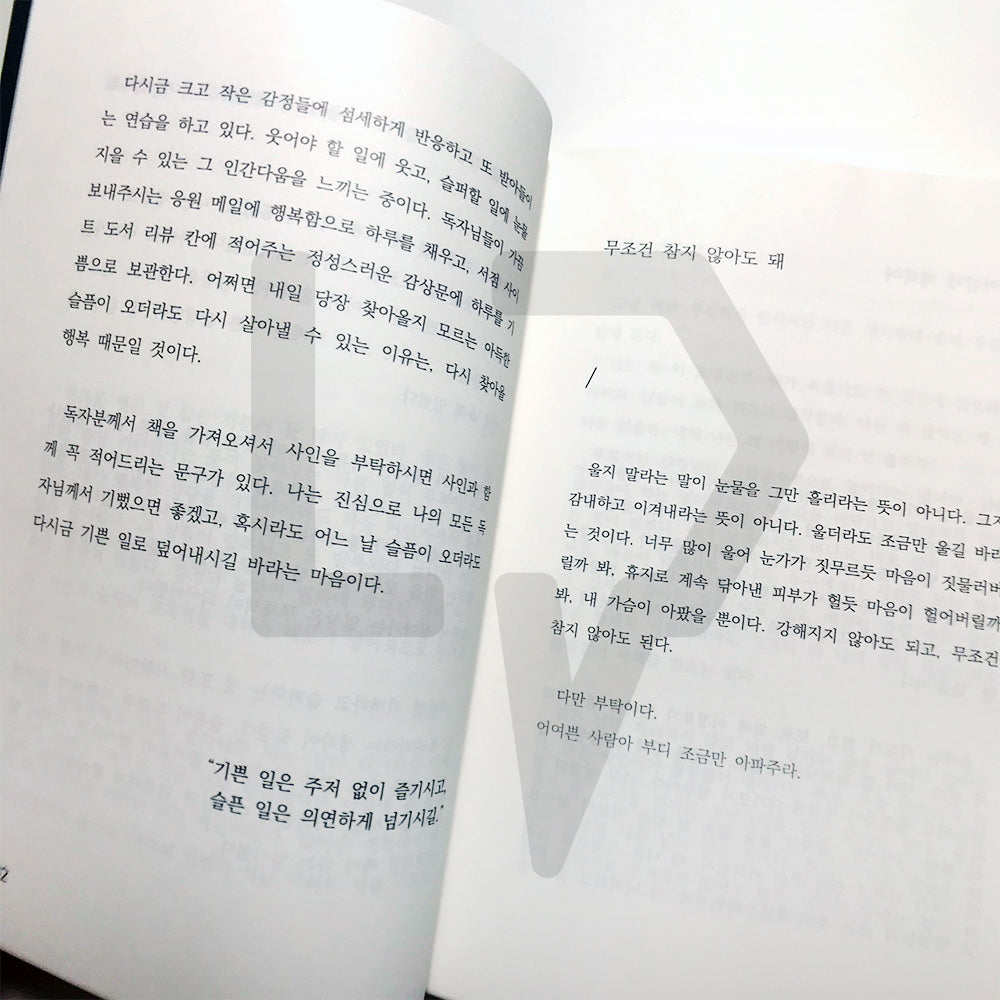 다시금 크고 작은 감정들에 섬세하게 반응하고 또 받아들이
는 연습을 하고 있다. 웃어야 할 일에 웃고, 슬퍼할 일에 눈물
지을 수 있는 그 인간다움을 느끼는 중이다. 독자님들이 가끔
보내주시는 응원 메일에 행복함으로 하루를 채우고, 서점 사이
트 도서 리뷰 칸에 적어주는 정성스러운 감상문에 하루를 기
쁨으로 보관한다. 어쩌면 내일 당장 찾아올지 모르는 아득한
슬픔이 오더라도 다시 살아낼 수 있는 이유는, 다시 찾아올
행복 때문일 것이다.
독자분께서 책을 가져오셔서 사인을 부탁하시면 사인과 함
께 꼭 적어드리는 문구가 있다. 나는 진심으로 나의 모든 독
자님께서 기뻤으면 좋겠고, 혹시라도 어느 날 슬픔이 오더라도
다시금 기쁜 일로 덮어내시길 바라는 마음이다.
“기쁜 일은 주저 없이 즐기시고,
슬픈 일은 의연하게 넘기시길.”
무조건 참지 않아도 돼
/
울지 말라는 말이 눈물을 그만 흘리라는 뜻이 아니다. 그저
감내하고 이겨내라는 뜻이 아니다. 울더라도 조금만 울길 바라
는 것이다. 너무 많이 울어 눈가가 짓무르듯 마음이 짓물러버
릴까 봐, 휴지로 계속 닦아낸 피부가 헐듯 마음이 헐어버릴까
봐, 내 가슴이 아팠을 뿐이다. 강해지지 않아도 되고, 무조건
참지 않아도 된다.
다만 부탁이다.
어여쁜 사람아 부디 조금만 아파주라.